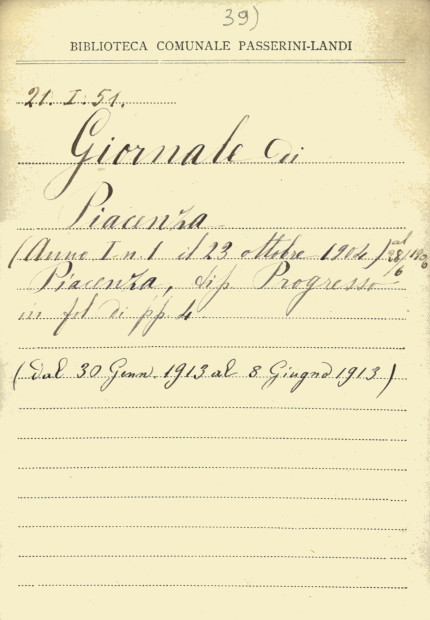 39)
BIBLIOTECA COMUNALE PASSERINI-LANDI
21. I. 51.
Giornale di
Piacenza
(Anno I n. 1 il 23 ottobre 1904) al 28/6
Piacenza, tip Progresso
in fol di pp 4
(dal 30 Genn. 1913 al 8 Giugno 1913)